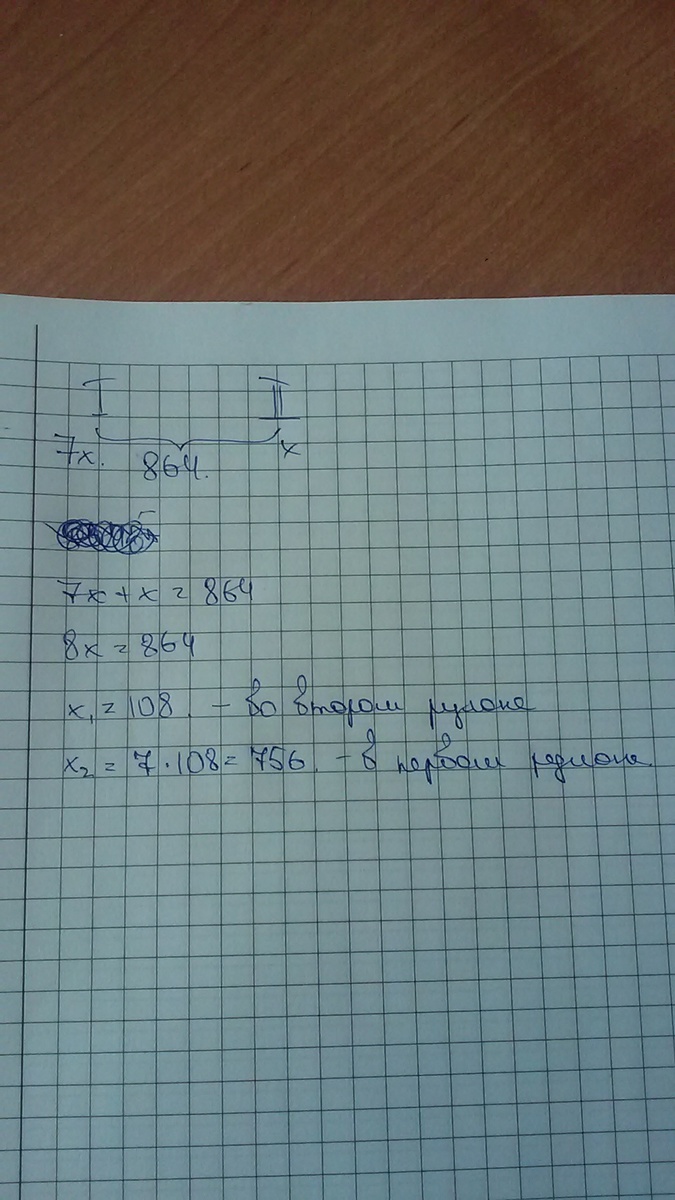 I II
7x. 864. x
7x + x = 864
8x = 864
x₁ = 108. – во втором рулоне
x₂ = 7 · 108 = 756. – в первом рулоне